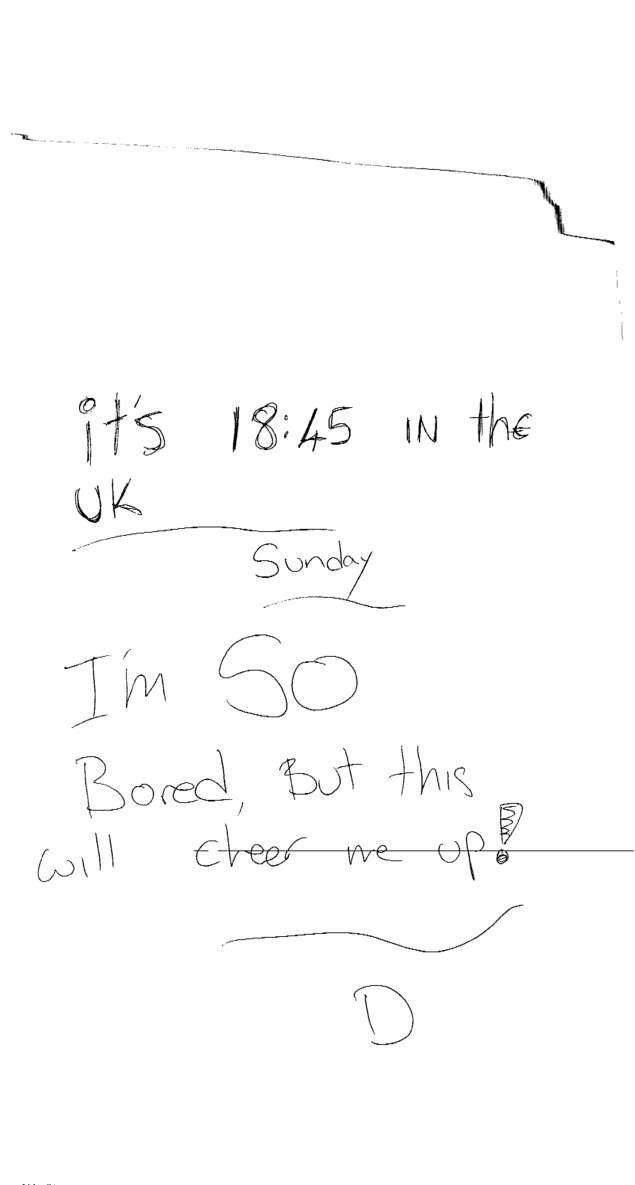 it's 18:45 IN the
UK
Sunday
I'm SO
Bored, But this
will cheer me up!
D